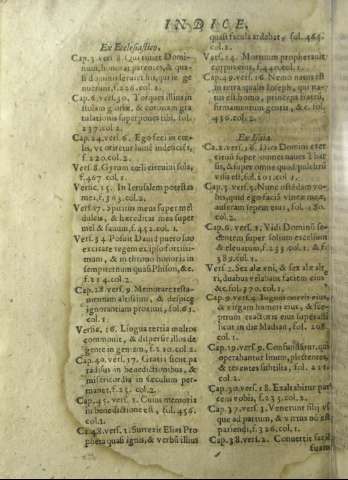 INDICE,
Ex Ecclesiastico.
Cap.3. vers. 8. Qui timet Domi-
num, honorat parentes, & qua-
si dominis serviet his, qui se ge-
nuerunt, f.226.col.1.
Cap.6. vers.30. Torques illius in
stolam gloriæ, & coronam gra-
tulationis superpones tibi, fol.
237.col.2.
Cap.24. vers.6. Ego feci in cœ-
lis, ut oriretur lumē indeficiēs,
f.220.col.2.
Vers.8. Gyrum cœli circuivi sola,
f.467 col.1.
Versic.15. In Ierusalem potestas
mea, f.303.col.2.
Vers.27. Spiritus meus super mel
dulcis, & hæreditas mea super
mel & favum, f.452.col.1.
Vers.34. Posuit David puero suo
excitare regem ex ipso fortissi-
mum, & in throno honoris in
sempiternum
f.214.col.2.
Cap.28. vers.9. Memorare testa-
mentum altissimi, & despice
ignorantiam proximi, fol.61.
col.1.
Versic.16. Lingua tertia multos
commovit, & dispersit illos de
gente in gentem, f.210.col.2.
Cap.40. vers.17. Gratia sicut pa-
radisus in benedictionibus, &
misericordia in sæculum per-
manet, f.25. col.2.
Cap.45. vers.1. Cuius memoria
in benedictione est, fol.456.
col.2.
Ca.48. vers.1. Surrexit Elias Pro-
pheta quasi ignis, & verbū illius
quasi facula ardebat, fol.465.
col.2.
Vers.14. Mortuum prophetavit
corpus eius, f.440.col.1.
Cap.49. vers.16. Nemo natus est
in terra qualis Ioseph, qui na-
tus est homo, princeps fratrū,
firmamentum gentis, &c. fol.
436.col.2.
Ex Isaia.
Ca.2. vers.16. Dies Domini exer-
cituum super omnes naves Thar
sis, & super omne quod pulchrū
visu est, fol.201.col.1.
Cap.5. vers.5. Nunc ostēdam vo-
bis, quid ego faciā vineæ meæ,
auferam sepem eius, fol.180
col.2.
Cap.6. vers.1. Vidi Dominū se-
dentem super solium excelsum
& elevatum, f.233.col.1. & f.
389.col.1.
Vers.2. Sex alæ uni, & sex alæ alte
ri, duabus velabant faciem eius
&c. fol.370.col.1.
Cap.9. vers.4. Iugum oneris eius,
& virgam humeri eius, & scep-
trum exactoris eius superasti
sicut in die Madian, fol.208.
col.1.
Cap.19. vers.9. Confundētur, qui
operabantur linum, plectentes,
& texentes subtilia, fol.221.
col.2.
Cap.30. vers.18. Exaltabitur par-
cens vobis, f.235.col.2.
Cap.37. vers.3. Venerunt filij us
que ad partum, & virtus nō est
pariendi, f.326.col.1.
Cap.38. vers.2. Convertit faciē
suam